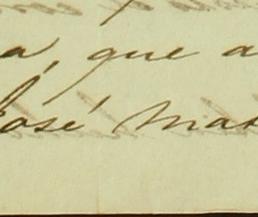 a, que a
José Mat